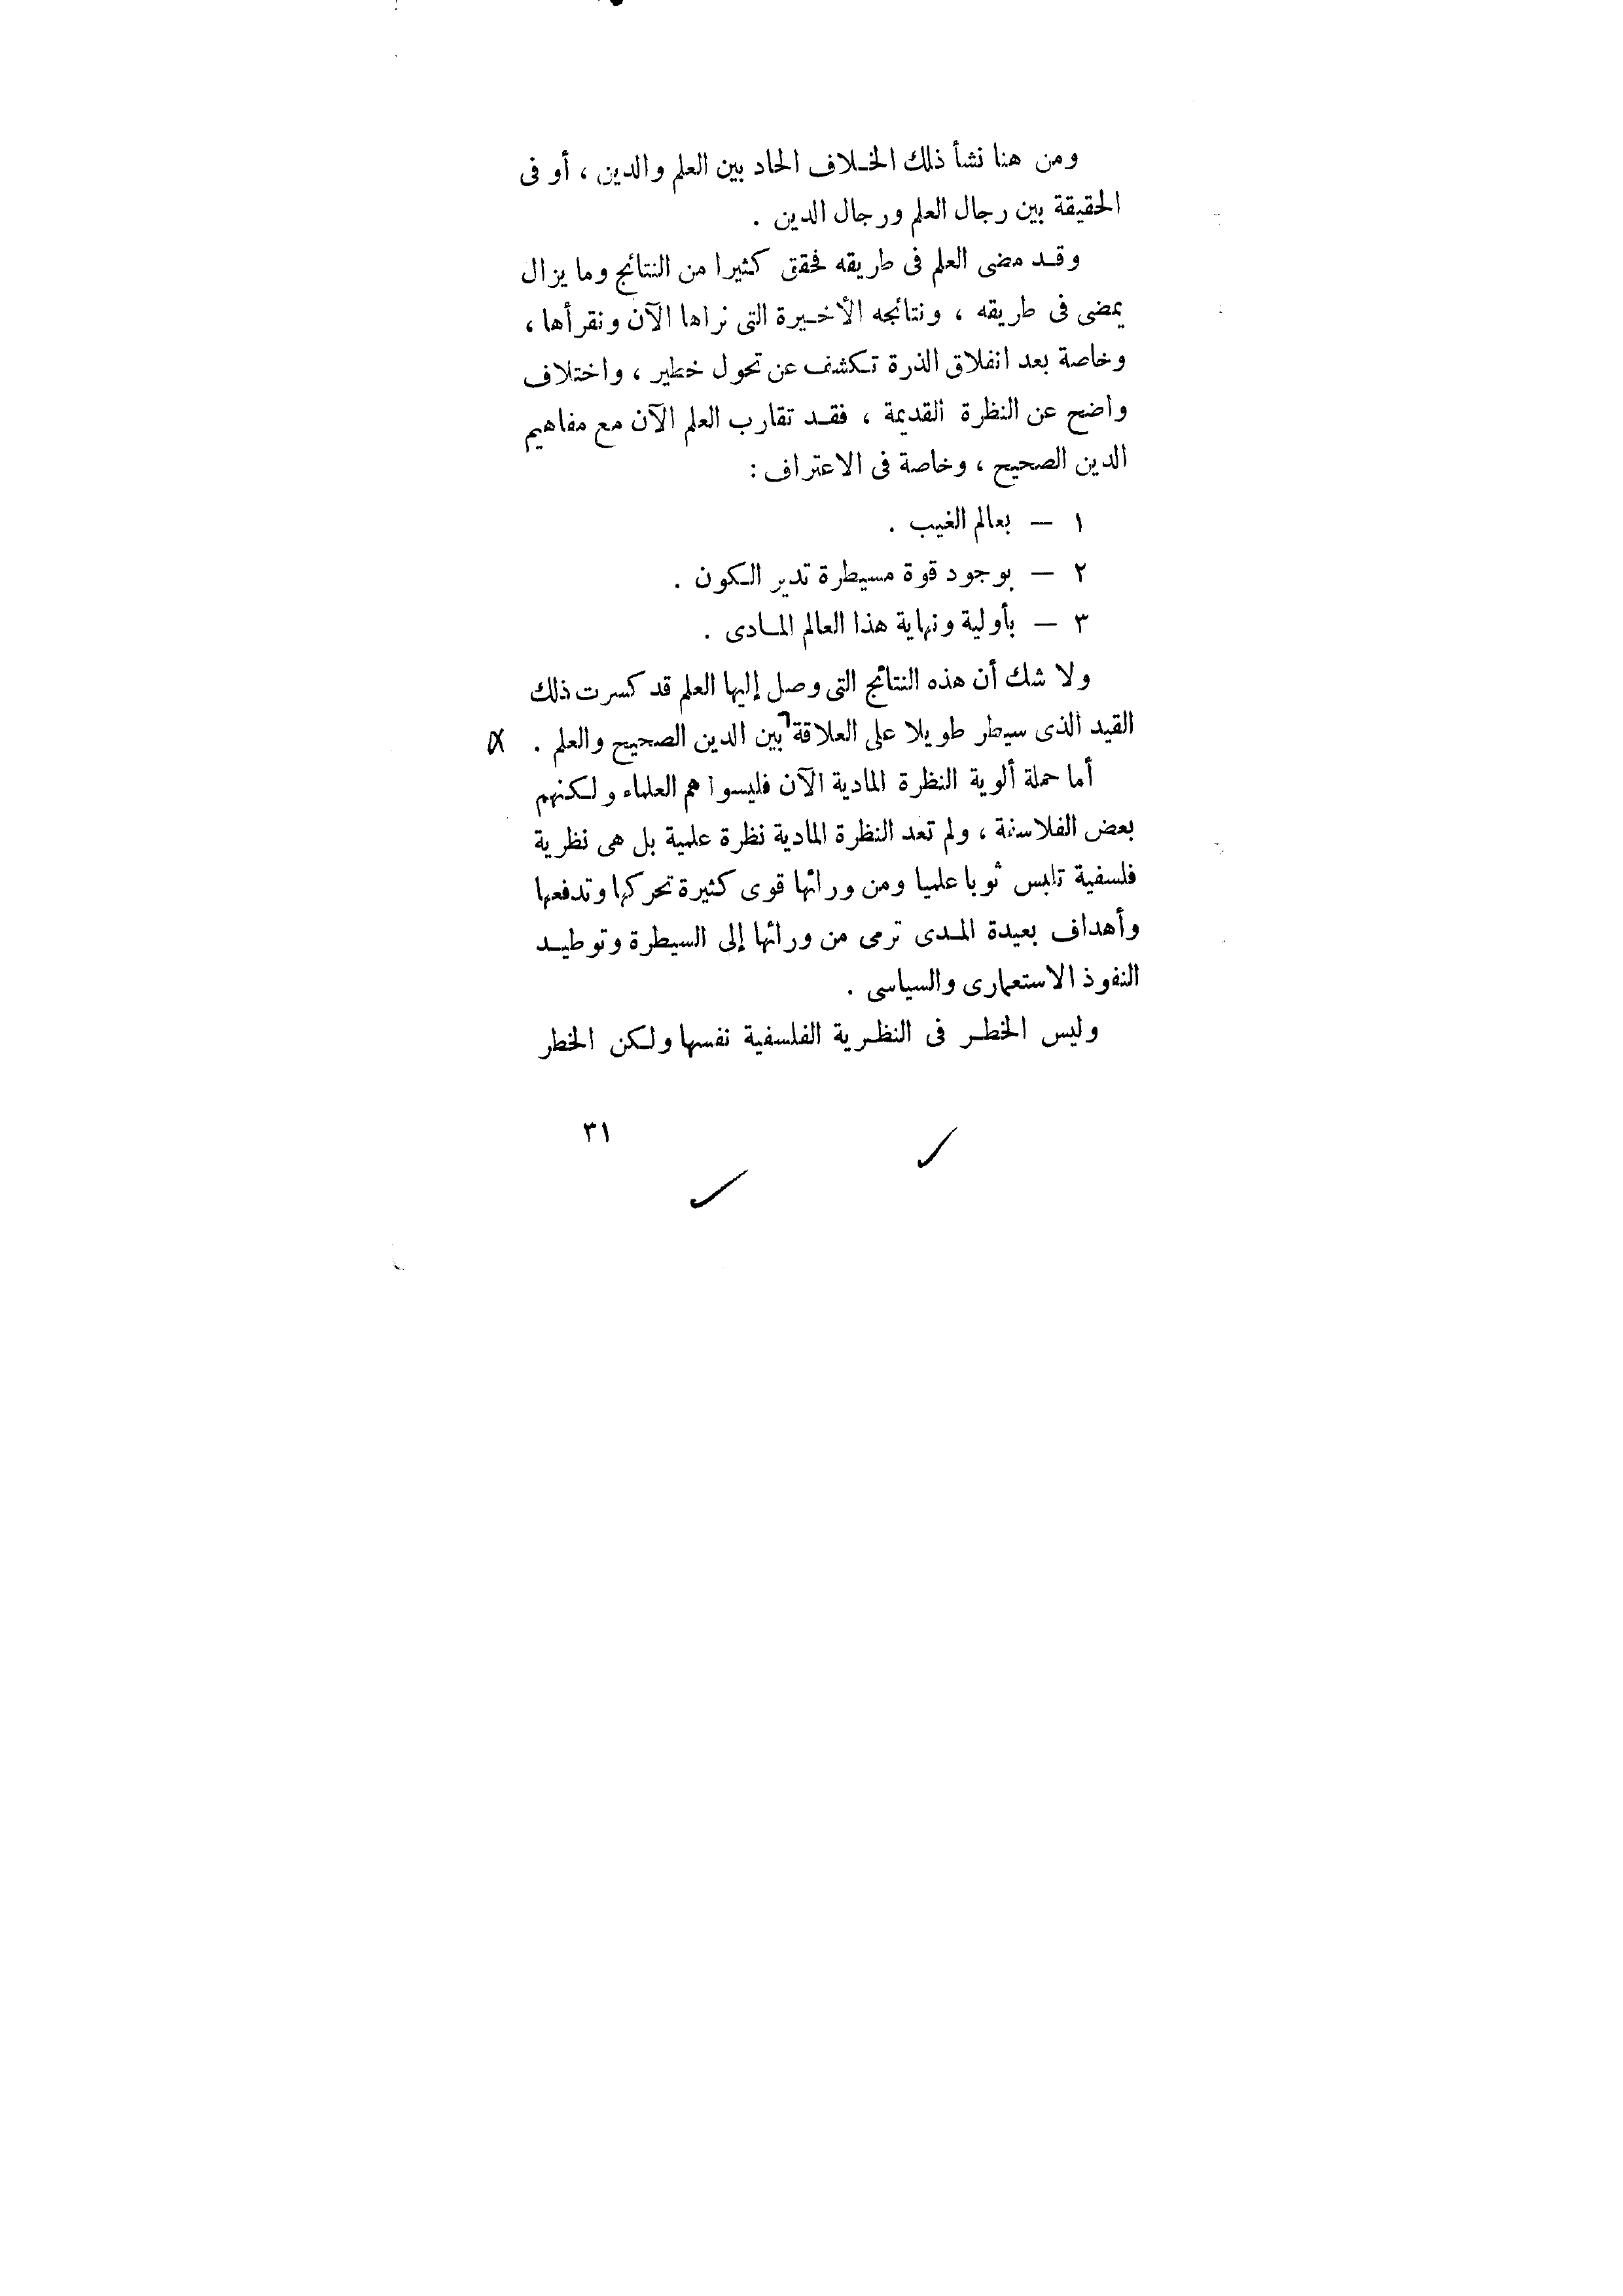 ومن هنا نشأ ذلك الخلاف الحاد بين العلم والدين ، أو فى
الحقيقة بين رجال العلم ورجال الدين .
وقد مضى العلم فى طريقه فحقق كثيرا من النتائج وما يزال
يمضى فى طريقه ، ونتائجه الأخيرة التى نراها الآن ونقرأها ،
وخاصة بعد انفلاق الذرة تكشف عن تحول خطير ، واختلاف
واضح عن النظرة القديمة ، فقد تقارب العلم الآن مع مفاهيم
الدين الصحيح ، وخاصة فى الاعتراف :
١ — بعالم الغيب .
٢ — بوجود قوة مسيطرة تدير الكون .
٣ — بأولية ونهاية هذا العالم المادى .
ولا شك أن هذه النتائج التى وصل إليها العلم قد كسرت ذلك
القيد الذى سيطر طويلا على العلاقة بين الدين الصحيح والعلم .
أما حملة ألوية النظرة المادية الآن فليسوا هم العلماء ولكنهم
بعض الفلاسفة ، ولم تعد النظرة المادية نظرة علمية بل هى نظرية
فلسفية تلبس ثوبا علميا ومن ورائها قوى كثيرة تحركها وتدفعها
وأهداف بعيدة المدى ترمى من ورائها إلى السيطرة وتوطيد
النفوذ الاستعمارى والسياسى .
وليس الخطر فى النظرية الفلسفية نفسها ولكن الخطر
٣١